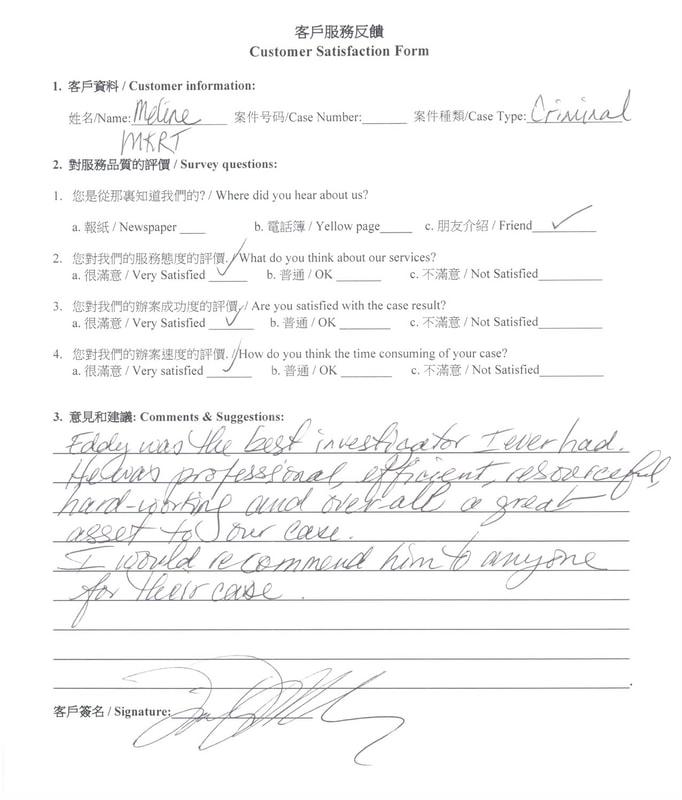 客戶服務反饋
Customer Satisfaction Form
1. 客戶資料 / Customer information:
姓名/Name: Meline 案件号码/Case Number:______ 案件種類/Case Type: Criminal
MKRT
2. 對服務品質的評價 / Survey questions:
1. 您是從那裏知道我們的? / Where did you hear about us?
a. 報紙 / Newspaper ____ b. 電話簿 / Yellow page_____ c. 朋友介紹 / Friend__✓__
2. 您對我們的服務態度的評價. / What do you think about our services?
a. 很滿意 / Very Satisfied __✓__ b. 普通 / OK ________ c. 不滿意 / Not Satisfied__________
3. 您對我們的辦案成功度的評價. / Are you satisfied with the case result?
a. 很滿意 / Very Satisfied __✓__ b. 普通 / OK ________ c. 不滿意 / Not Satisfied__________
4. 您對我們的辦案速度的評價. / How do you think the time consuming of your case?
a. 很滿意 / Very satisfied __✓__ b. 普通 / OK ________ c. 不滿意 / Not Satisfied__________
3. 意見和建議: Comments & Suggestions:
Eddy was the best investigator I ever had.
He was professional, efficient, resourceful,
hard-working and overall a great
asset to our case.
I would recommend him to anyone
for their case.
客戶簽名 / Signature: